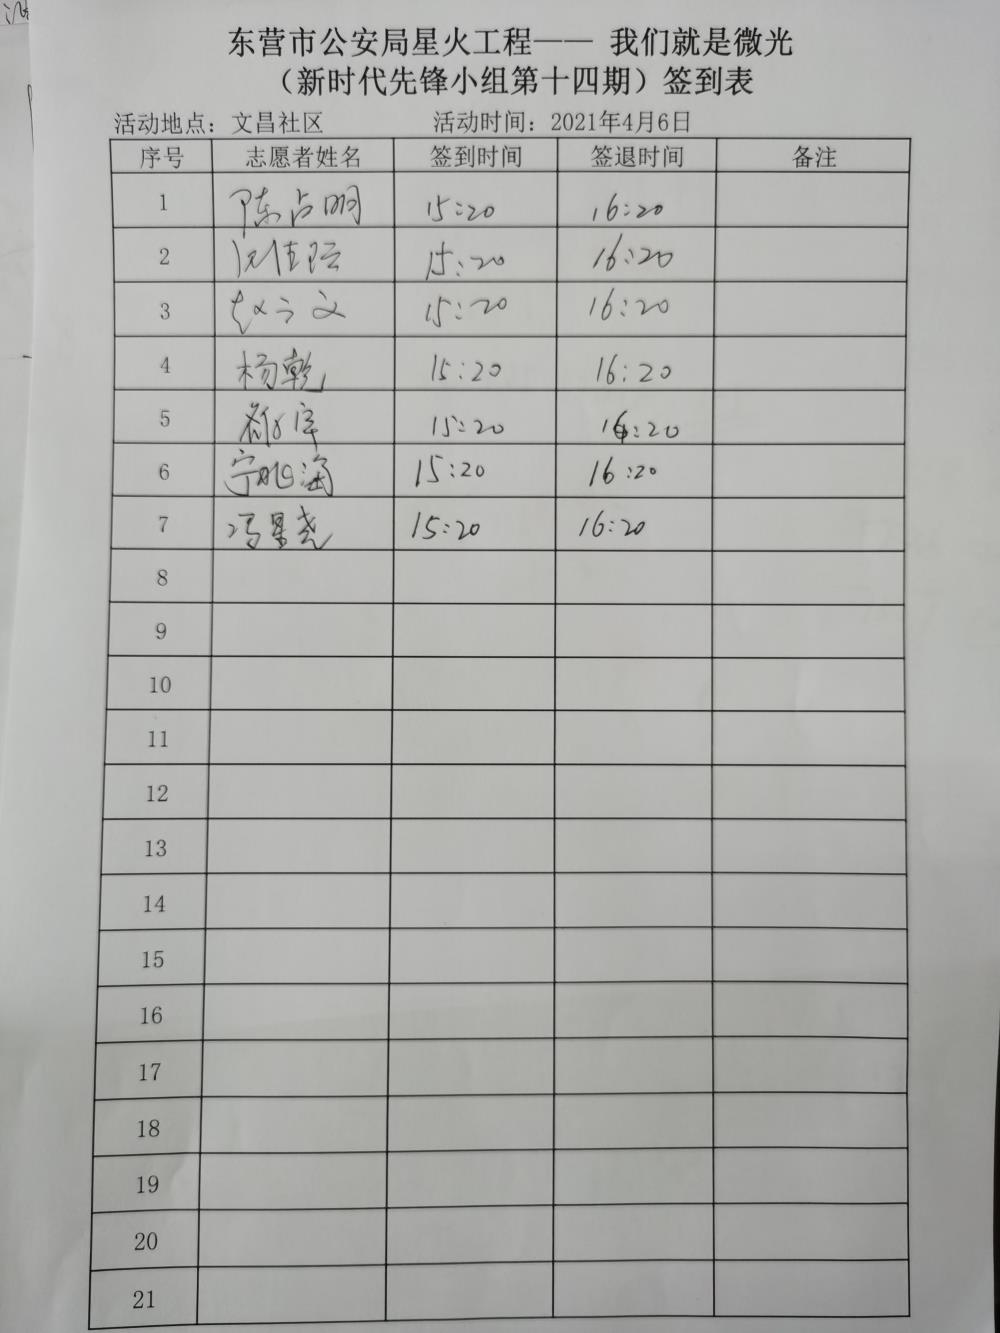 东营市公安局星火工程—— 我们就是微光
（新时代先锋小组第十四期）签到表
活动地点：文昌社区 活动时间：2021年4月6日
序号 志愿者姓名 签到时间 签退时间 备注
1 陈占明 15:20 16:20
2 15:20 16:20
3 赵云文 15:20 16:20
4 杨乾 15:20 16:20
5 15:20 16:20
6 宁 15:20 16:20
7 冯景尧 15:20 16:20
8
9
10
11
12
13
14
15
16
17
18
19
20
21